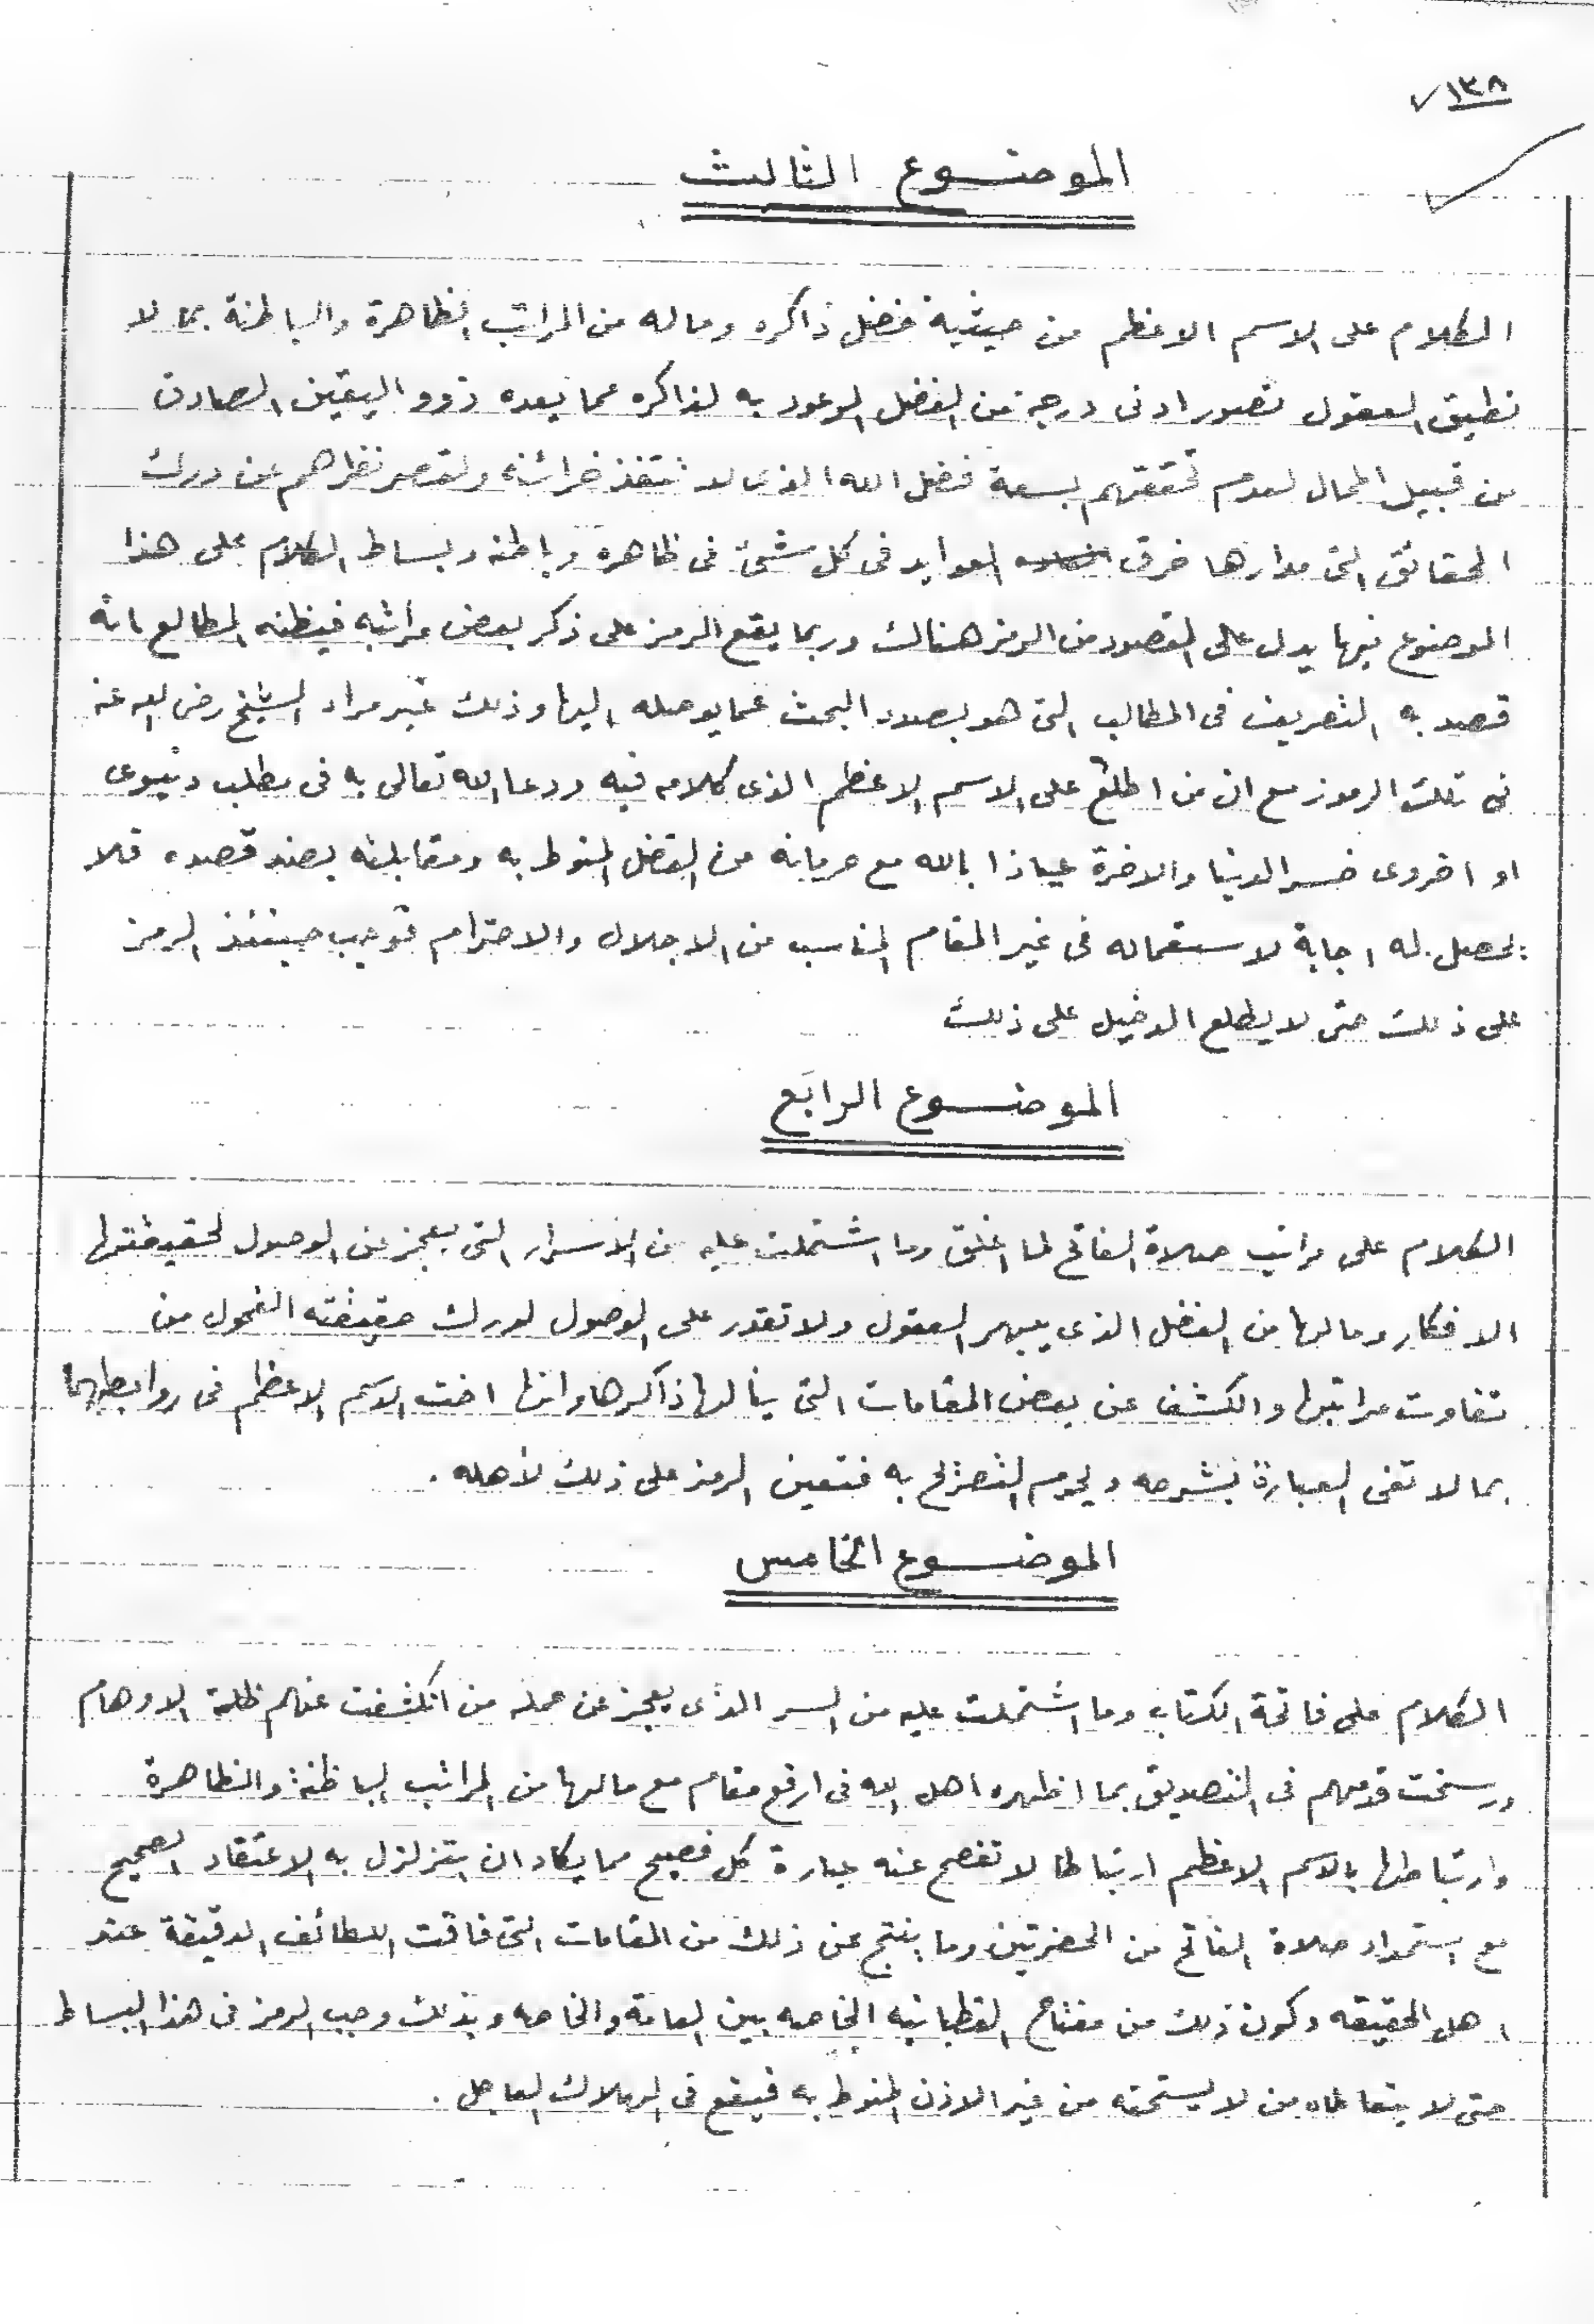 ١٣٨
الموضوع الثالث
الكلام على الاسم الاعظم من حيثية فضل ذاكره وماله من المراتب الظاهرة والباطنة بما لا
تطيق العقول تصور ادنى درجة من الفضل الموعود به لذاكره مما يعده ذوو اليقين الصادق
من قبيل المحال لعدم تحققهم بسعة فضل الله الذى لا تنفذ خزائنه ولقصر نظرهم عن درك
الحقائق التى مدارها خرق العوايد فى كل شئ فى ظاهره وباطنه وبساط الكلام على هذا
الموضوع فيها يدل على المقصود من الرمز هنالك وربما يقع الرمز على ذكر بعض مراتبه فيظنه المطالع انه
قصد به التصريف فى المطالب التى هو بصدد البحث عما يوصله اليها وذلك غير مراد الشيخ رضى الله عنه
فى تلك الرموز مع ان من اطلع على الاسم الاعظم الذى كلامه فيه ودعا الله تعالى به فى مطلب دنيوى
او اخروى خسر الدنيا والاخرة عياذا بالله مع حرمانه من الفضل المنوط به ومقابلته بضد قصده فلا
يحصل له اجابة لاستعماله فى غير المقام المناسب من الاجلال والاحترام فوجب حينئذ الرمز
على ذلك حتى لا يطلع الدخيل على ذلك
الموضوع الرابع
الكلام على مراتب صلاة الفاتح لما اغلق وما اشتملت عليه من الاسرار التى يعجز عن الوصول لحقيقتها
الافكار وما لها من الفضل الذى يبهر العقول ولا تقدر على الوصول لدرك حقيقته الفحول من
تفاوت مراتبها والكشف عن بعض المقامات التى ينالها ذاكرها وانها اخت الاسم الاعظم فى روابطهما
بما لا تفى العبارة بشرحه ويحرم التصريح به فتعين الرمز على ذلك لأهله .
الموضوع الخامس
الكلام على فاتحة الكتاب وما اشتملت عليه من السر الذى يعجز عن حمله من انكشفت عنهم ظلمة الاوهام
ورسخت قدمهم فى التصديق بما اظهره اهل الله فى ارفع مقام مع مالها من المراتب الباطنة والظاهرة
وارتباطها بالاسم الاعظم ارتباطا لا تفصح عنه عبارة كل فصيح مما يكاد ان يتزلزل به الاعتقاد الصحيح
مع استمداد صلاة الفاتح من الحضرتين وما ينتج عن ذلك من المقامات التى فاقت اللطائف الدقيقة عند
اهل الحقيقه وكون ذلك من مفتاح القطبانيه الخاصه بين العامة والخاصه وبذلك وجب الرمز فى هذا البساط
حتى لا يتعاطاه من لا يستحقه من غير الاذن المنوط به فيقع فى الهلاك العاجل .